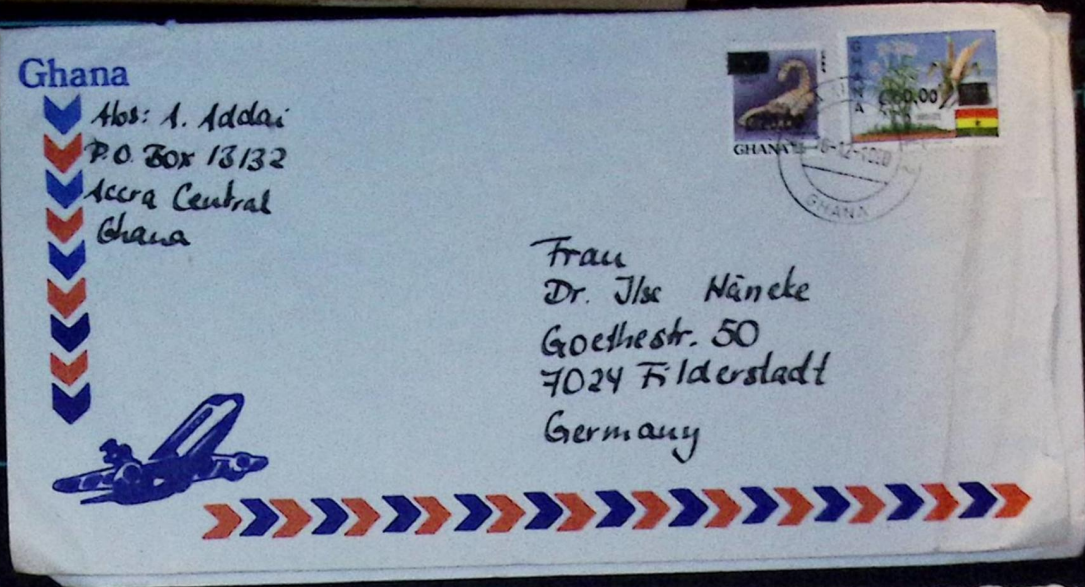 Ghana
Abs: A. Addai
P.O. Box 13132
Accra Central
Ghana
GHANA
GHANA
GHANA
Frau
Dr. Ilse Häncke
Goethestr. 50
7024 Filderstadt
Germany